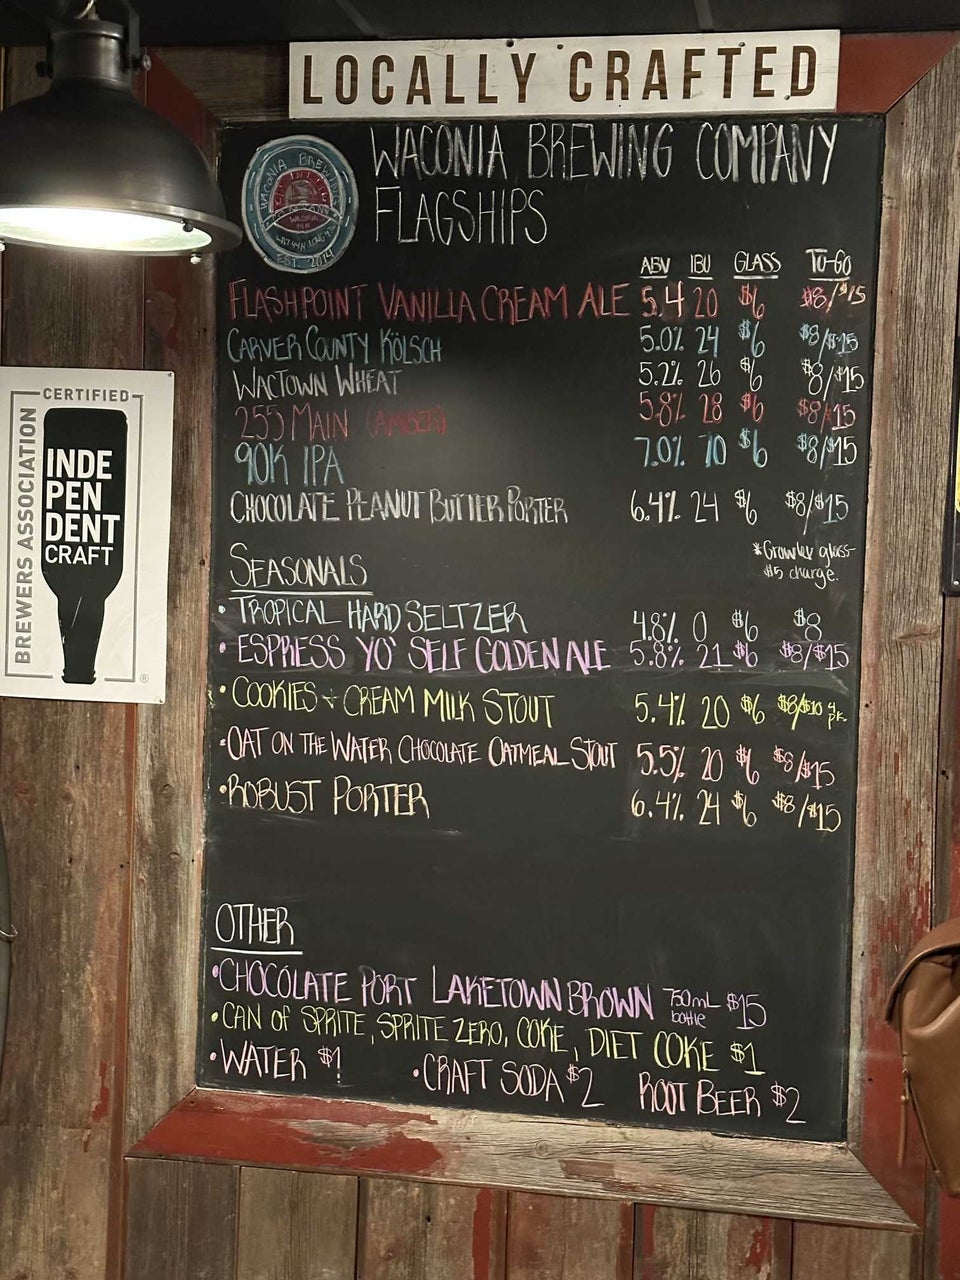 LOCALLY CRAFTED
WACONIA BREWING COMPANY
FLAGSHIPS
WACONIA BREWING
EST. 2014
ABV IBU GLASS TO-GO
FLASHPOINT VANILLA CREAM ALE 5.4 20 $6 $8/$15
CARVER COUNTY KÖLSCH 5.0% 24 $6 $8/$15
WACTOWN WHEAT 5.2% 26 $6 $8/$15
255 MAIN (AMBER) 5.8% 28 $6 $8/$15
90K IPA 7.0% 70 $6 $8/$15
CHOCOLATE PEANUT BUTTER PORTER 6.4% 24 $6 $8/$15
*Growler glass
$5 charge.
SEASONALS
• TROPICAL HARD SELTZER 4.8% 0 $6 $8
• ESPRESS YO' SELF GOLDEN ALE 5.8% 21 $6 $8/$15
• COOKIES + CREAM MILK STOUT 5.4% 20 $6 $8/$10 4 pk.
• OAT ON THE WATER CHOCOLATE OATMEAL STOUT 5.5% 20 $6 $8/$15
• ROBUST PORTER 6.4% 24 $6 $8/$15
OTHER
• CHOCOLATE PORT LAKETOWN BROWN 750mL bottle $15
• CAN OF SPRITE, SPRITE ZERO, COKE, DIET COKE $1
• WATER $1 • CRAFT SODA $2 ROOT BEER $2
CERTIFIED
BREWERS ASSOCIATION
INDE
PEN
DENT
CRAFT
®